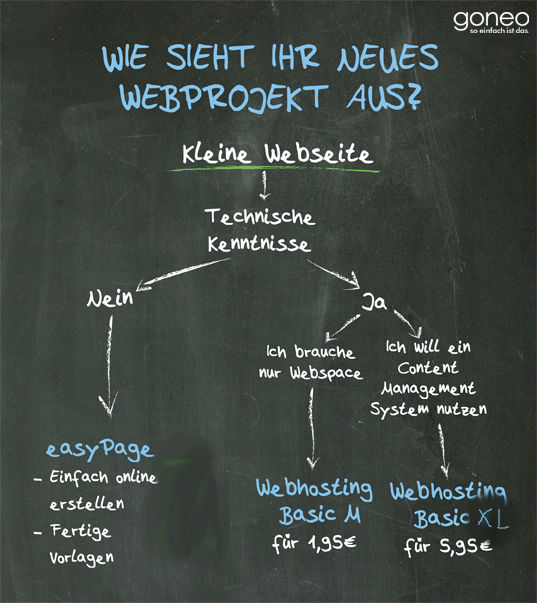 goneo
so einfach ist das.
WIE SIEHT IHR NEUES
WEBPROJEKT AUS?
Kleine Webseite
Technische
Kenntnisse
Nein
Ja
Ich brauche
nur Webspace
Ich will ein
Content
Management
System nutzen
easyPage
- Einfach online
erstellen
- Fertige
Vorlagen
Webhosting
Basic M
für 1,95€
Webhosting
Basic XL
für 5,95€